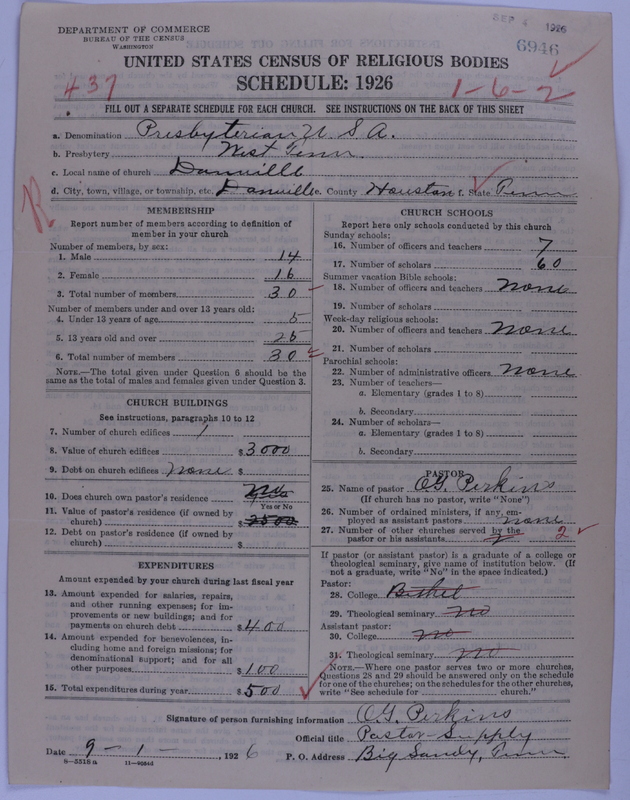 DEPARTMENT OF COMMERCE
BUREAU OF THE CENSUS
WASHINGTON
SEP 4 1926
6946
UNITED STATES CENSUS OF RELIGIOUS BODIES
SCHEDULE: 1926
437
1-6-2
FILL OUT A SEPARATE SCHEDULE FOR EACH CHURCH. SEE INSTRUCTIONS ON THE BACK OF THIS SHEET
a. Denomination Presbyterian U S A.
b. Presbytery West Tenn.
c. Local name of church Danville
d. City, town, village, or township, etc. Danville e. County Houston f. State Tenn
R
MEMBERSHIP
Report number of members according to definition of
member in your church
Number of members, by sex:
1. Male 14
2. Female 16
3. Total number of members 30
Number of members under and over 13 years old:
4. Under 13 years of age 5
5. 13 years old and over 25
6. Total number of members 30
NOTE.—The total given under Question 6 should be the
same as the total of males and females given under Question 3.
CHURCH BUILDINGS
See instructions, paragraphs 10 to 12
7. Number of church edifices 1
8. Value of church edifices $ 3000
9. Debt on church edifices None $
10. Does church own pastor's residence
Yes or No
11. Value of pastor's residence (if owned by
church) $ 2500
12. Debt on pastor's residence (if owned by
church) $
EXPENDITURES
Amount expended by your church during last fiscal year
13. Amount expended for salaries, repairs,
and other running expenses; for im-
provements or new buildings; and for
payments on church debt $ 400
14. Amount expended for benevolences, in-
cluding home and foreign missions; for
denominational support; and for all
other purposes $ 100
15. Total expenditures during year $ 500
CHURCH SCHOOLS
Report here only schools conducted by this church
Sunday schools:
16. Number of officers and teachers 7
17. Number of scholars 60
Summer vacation Bible schools:
18. Number of officers and teachers None
19. Number of scholars
Week-day religious schools:
20. Number of officers and teachers None
21. Number of scholars
Parochial schools:
22. Number of administrative officers None
23. Number of teachers—
a. Elementary (grades 1 to 8)
b. Secondary
24. Number of scholars—
a. Elementary (grades 1 to 8)
b. Secondary
PASTOR
25. Name of pastor O.G. Perkins
(If church has no pastor, write "None")
26. Number of ordained ministers, if any, em-
ployed as assistant pastors none
27. Number of other churches served by the
pastor or his assistants 2
If pastor (or assistant pastor) is a graduate of a college or
theological seminary, give name of institution below. (If
not a graduate, write "No" in the space indicated.)
Pastor:
28. College Bethel
29. Theological seminary No
Assistant pastor:
30. College No
31. Theological seminary No
NOTE.—Where one pastor serves two or more churches,
Questions 28 and 29 should be answered only on the schedule
for one of the churches; on the schedules for the other churches,
write "See schedule for church."
Signature of person furnishing information O.G. Perkins
Official title Pastor-Supply
Date 9-1-, 1926 P. O. Address Big Sandy, Tenn
8-5518a 11-9064d